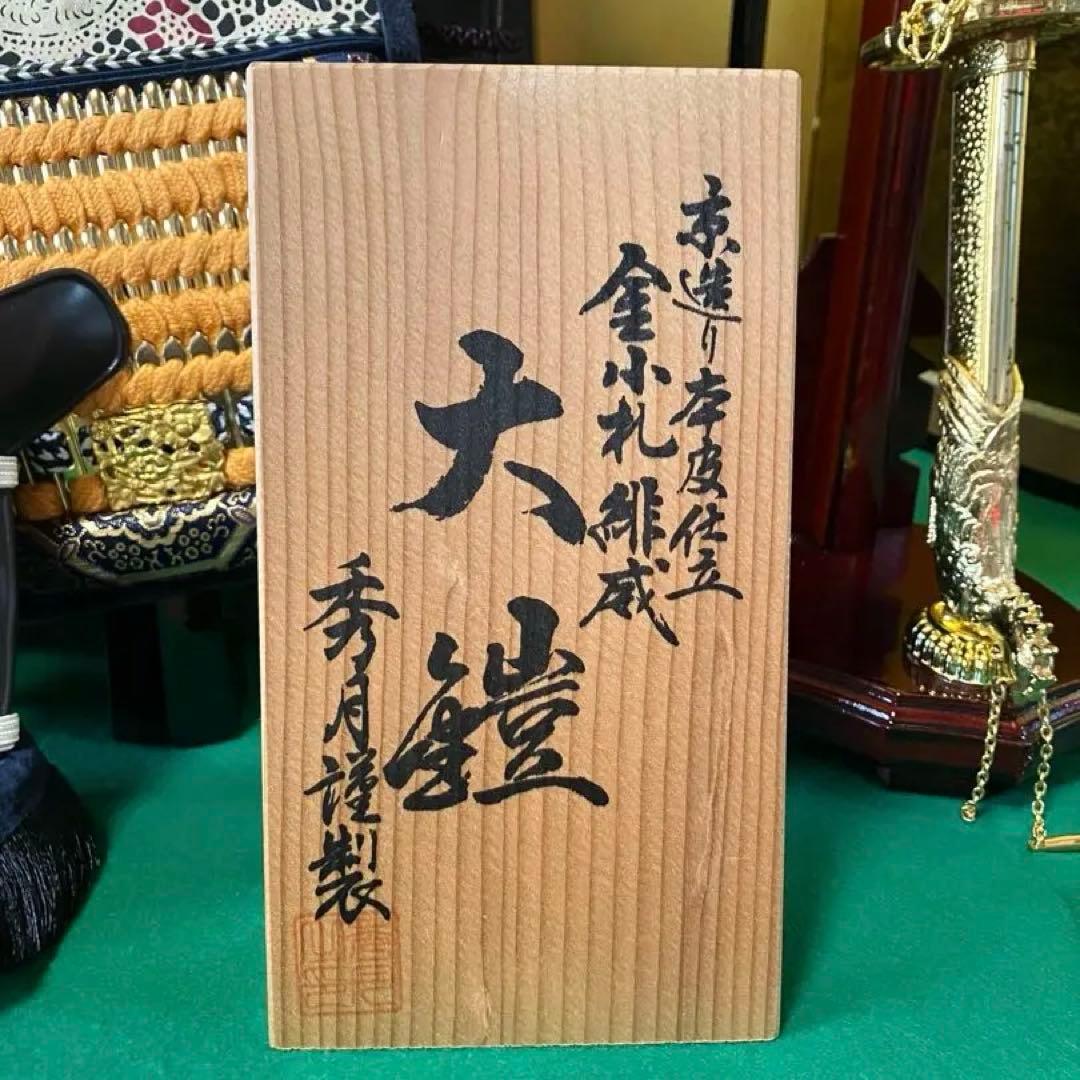 京造り本皮仕立
金小札緋威
大鎧
秀月謹製